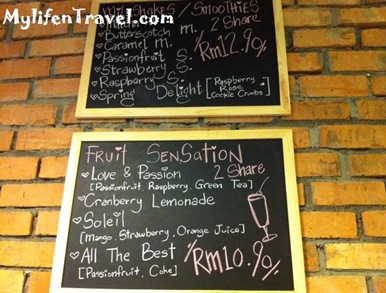 MylifenTravel.com
MilkShakes / SMOOTHIES
2 Share
Butterscotch m.
Caramel m.
Passionfruit S.
Strawberry S.
Raspberry S.
Spring Delight [Raspberry
Rose
Cookie Crumbs]
RM12.90
FRUIT SENSATION
Love & Passion 2 Share
[Passionfruit, Raspberry, Green Tea]
Cranberry Lemonade
Soleil
[Mango, Strawberry, Orange Juice]
All The Best
[Passionfruit, Coke]
RM10.90